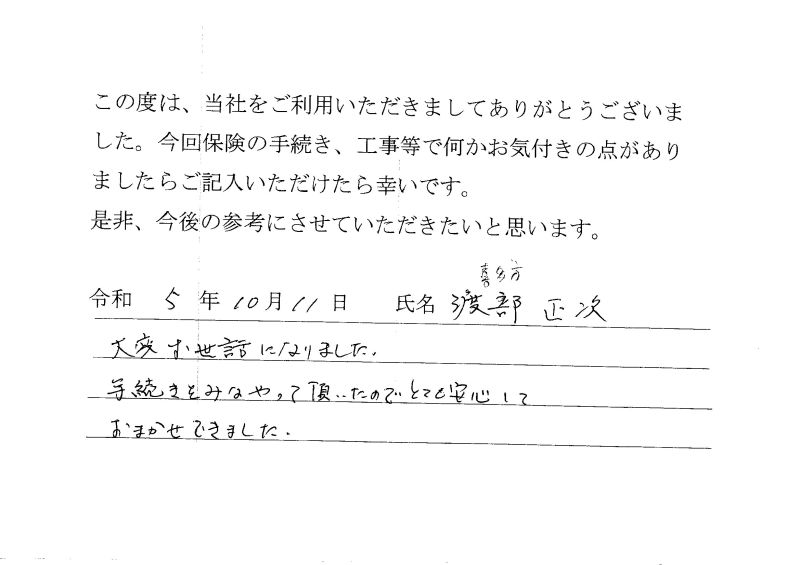 この度は、当社をご利用いただきましてありがとうございま
した。今回保険の手続き、工事等で何かお気付きの点があり
ましたらご記入いただけたら幸いです。
是非、今後の参考にさせていただきたいと思います。
喜多方
令和 5 年 10 月 11 日 氏名 渡部 正次
大変お世話になりました.
手続きをみなやって頂いたのでとても安心して
おまかせできました.